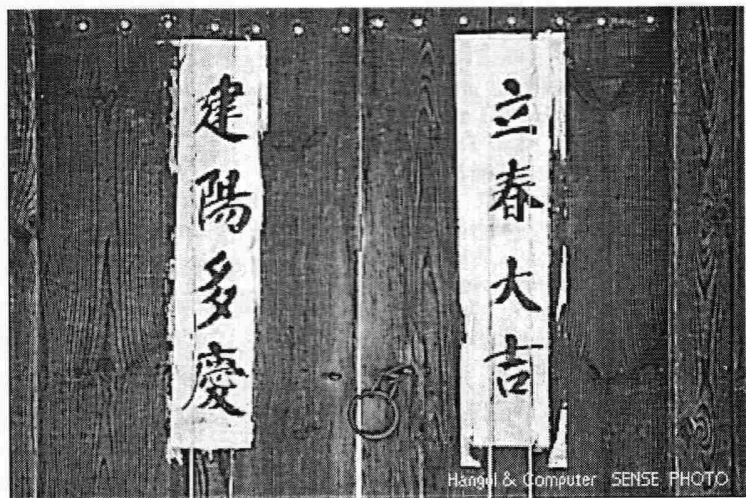 立春大吉
建陽多慶
Hangol & Computer SENSE PHOTO